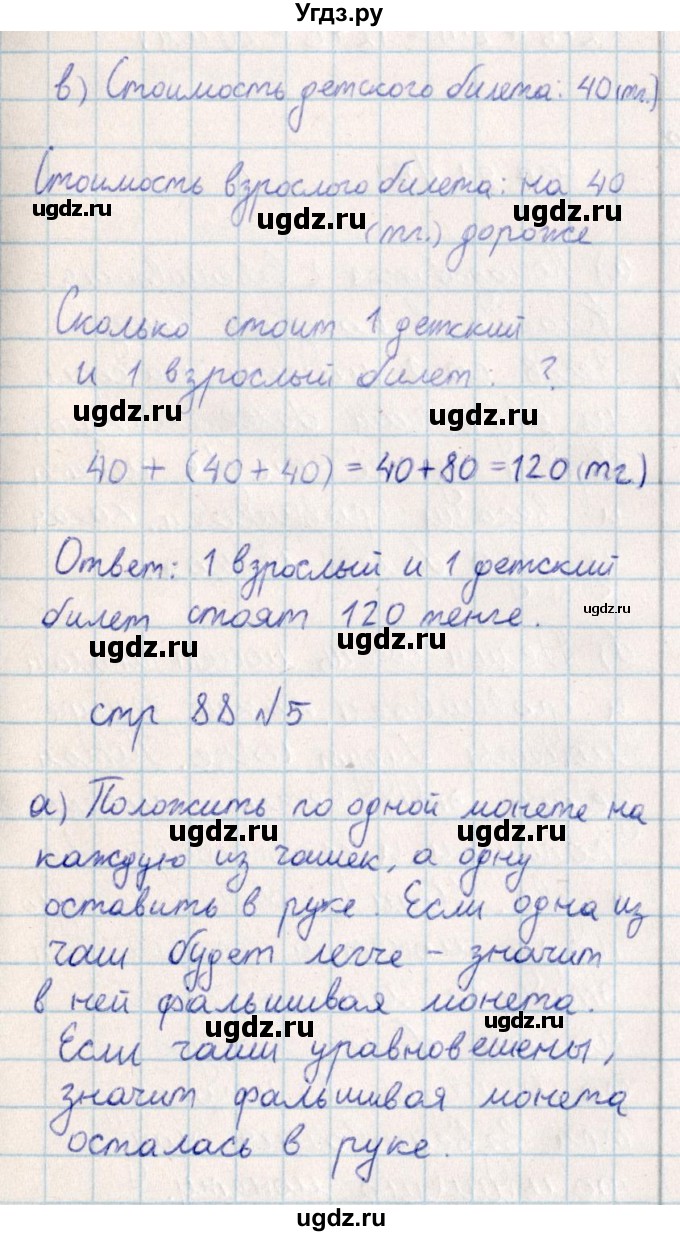 Угдз.ру
в) Стоимость детского билета: 40 (тг.)
Стоимость взрослого билета: на 40
ugdz.ru ugdz.ru ugdz.ru
(тг.) дороже
Сколько стоит 1 детский
и 1 взрослый билет: ?
ugdz.ru ugdz.ru
40 + (40 + 40) = 40 + 80 = 120 (тг.)
Ответ: 1 взрослый и 1 детский
билет стоят 120 тенге.
ugdz.ru
ugdz.ru ugdz.ru
стр 88 №5
а) Положить по одной монете на
ugdz.ru ugdz.ru
каждую из чашек, а одну
оставить в руке. Если одна из
чаш будет легче - значит
в ней фальшивая монета.
ugdz.ru ugdz.ru
Если чаши уравновешены,
значит фальшивая монета
осталась в руке.
ugdz.ru